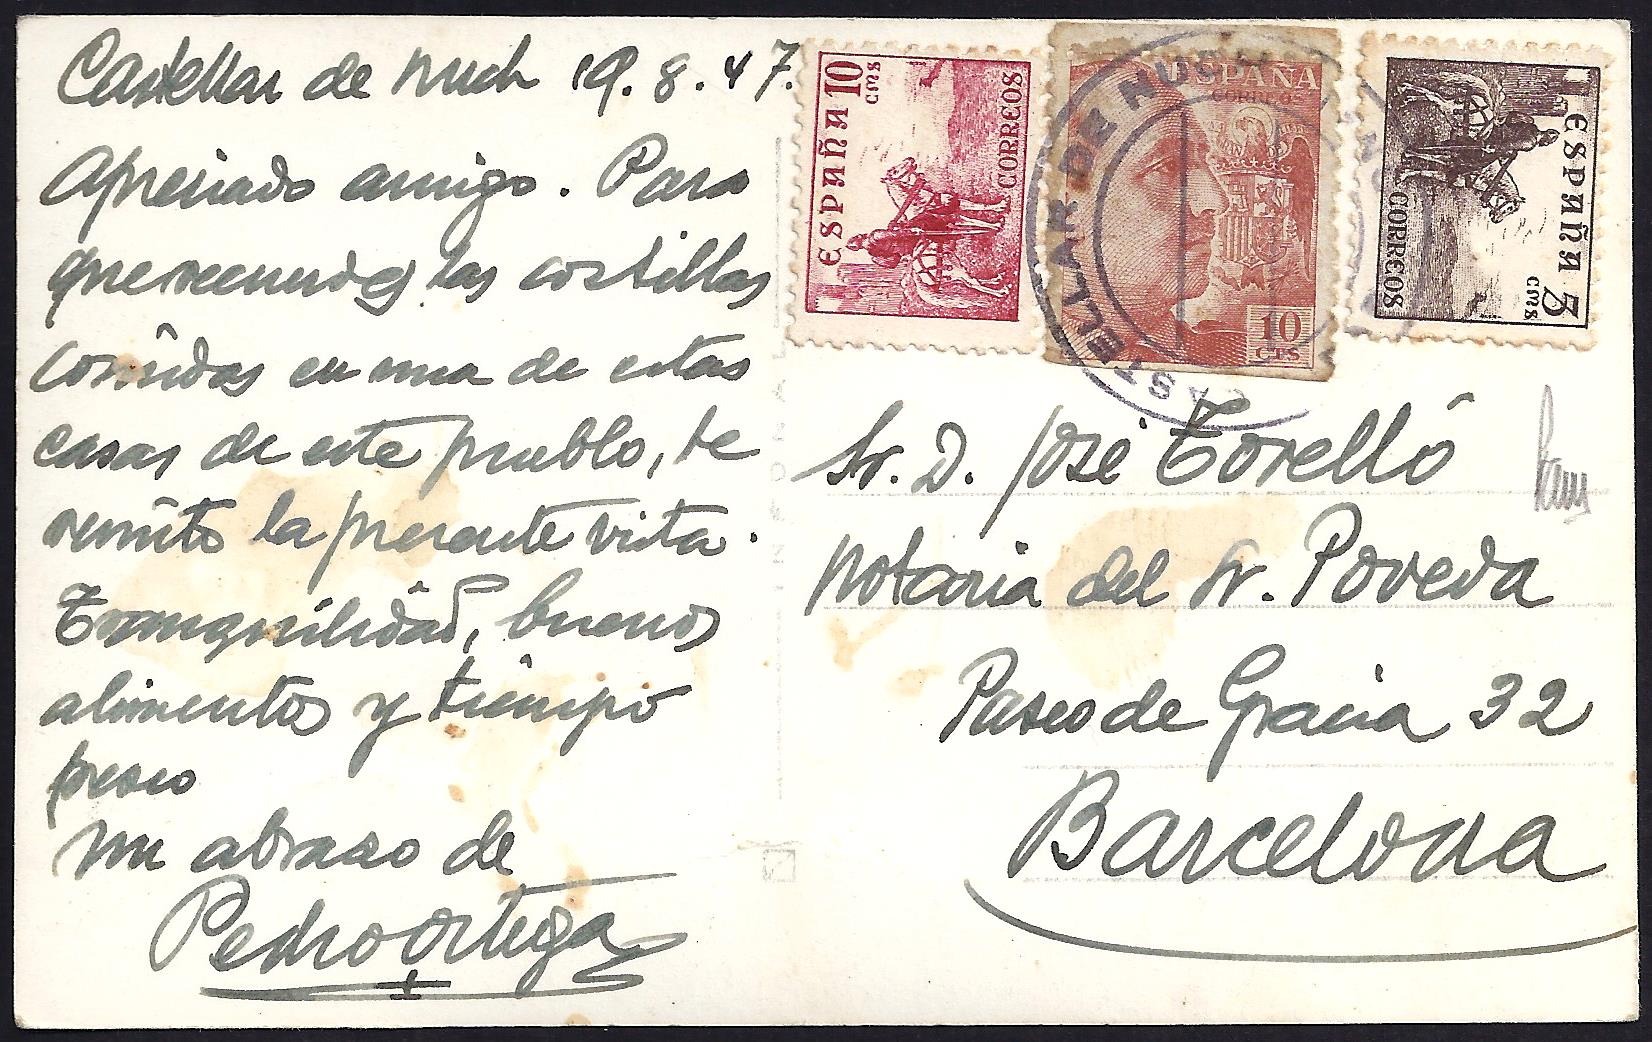 Castellar de Nuch 19.8.47.
Apreciado amigo. Para
que recuerdes las costillas
comidas en una de estas
casas de este pueblo, te
remito la presente vista.
Tranquilidad, buenos
alimentos y tiempo
fresco
un abrazo de
Pedro Ortega
ESPAÑA 10 cms
CORREOS
ESPAÑA
CORREOS
10
CTS
CASTELLAR DE NUCH
ESPAÑA 5 cms
CORREOS
Sr. D. José Torelló
Notaria del Sr. Poveda
Paseo de Gracia 32
Barcelona